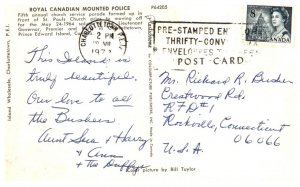 ROYAL CANADIAN MOUNTED POLICE
P64205
Fifth annual church service parade formed up in
front of St. Pauls Church prior to moving off
for the May 24-1964 service. Lieutenant
Governor, Premier and
Prince Edward Island.
Island Wholesale, Charlottetown, P.E.I.
CHARLOTTETOWN P.E.I.
2 PM
PRE-STAMPED EN
THRIFTY-CONV
ENVELOPPES
CANADA
POST CARD
This Island is
truly beautiful.
Our love to all
the Bushers
Aunt Sea & Harry
& Ann
& the Duffys
Mr. Richard R. Busher
Crestwood Rd.
R.F.D. 1
Rockville, Connecticut
06066
U.S.A
picture by Bill Taylor